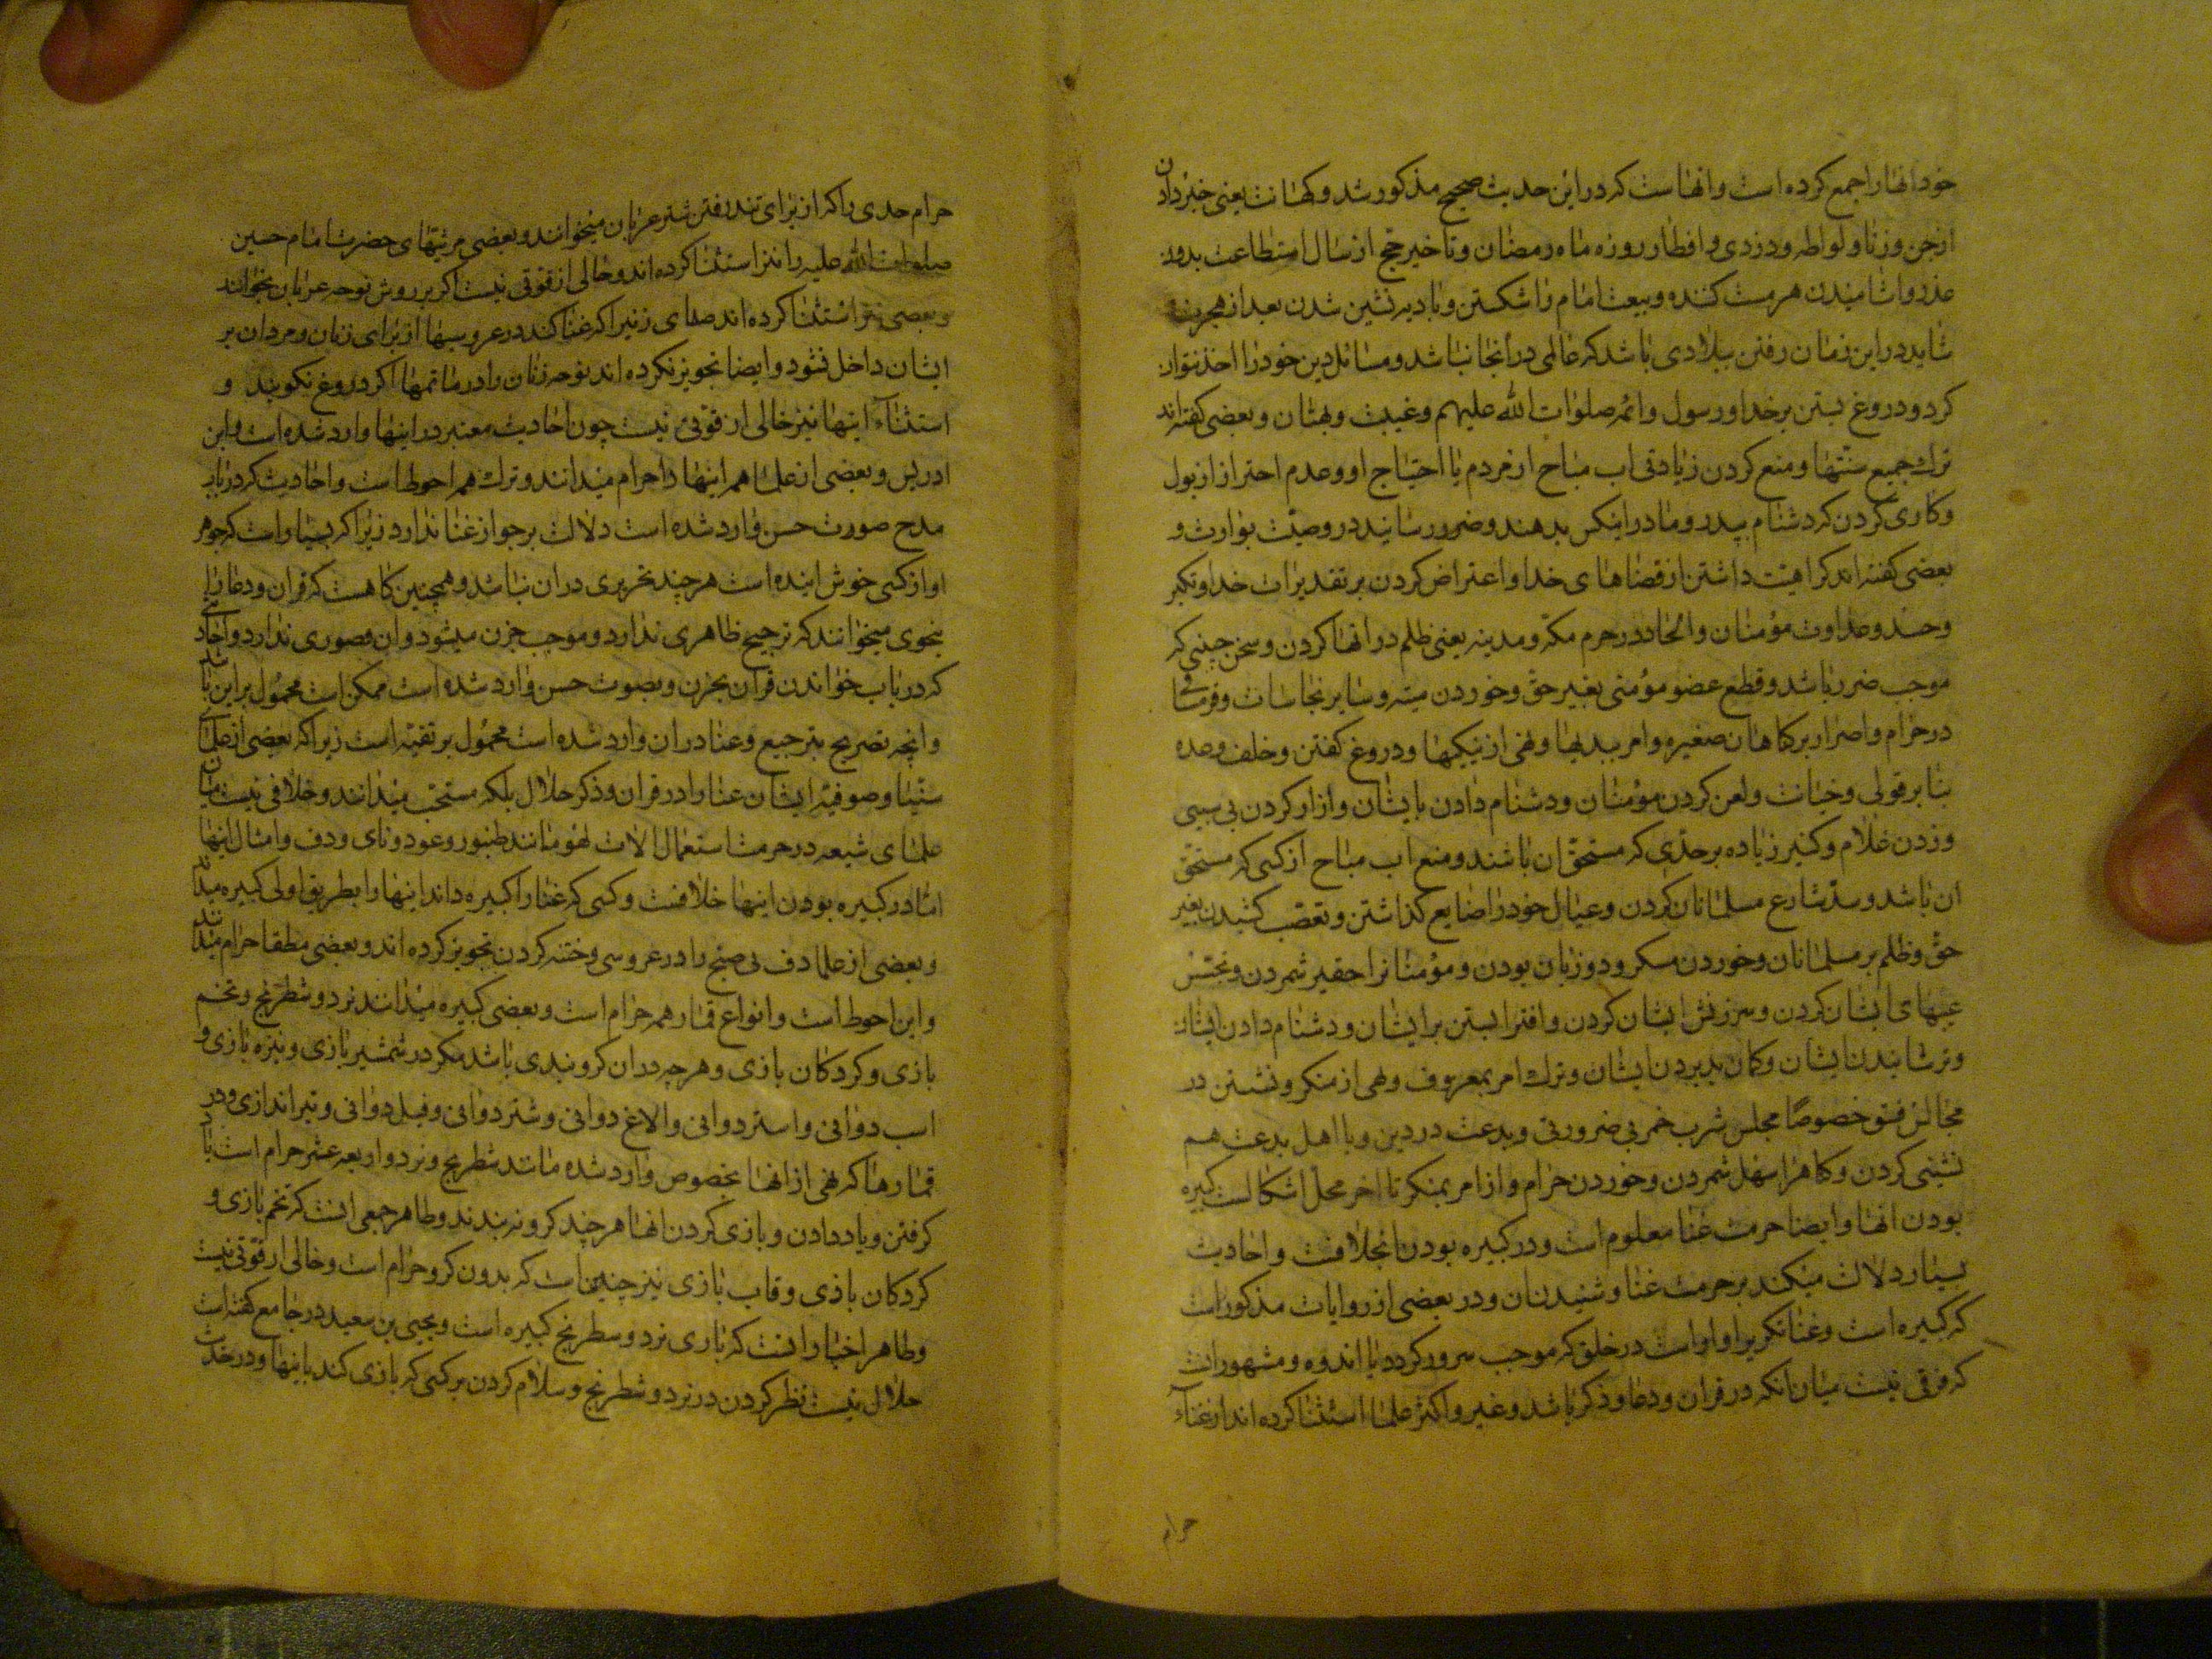 خود انها را جمع کرده است و انها ست که در این حدیث صحیح مذکور شد و کهانت یعنی خبر دادن
از جن و زنا و لواطه و دزدی و افطار روزه ماه رمضان و تاخیر حج از سال استطاعت بدون
عذر و اشامیدن هر مست کننده و بیعت امام را شکستن و بادیه نشین شدن بعد از هجرت
شاید در این زمان رفتن ببلادی باشد که عالمی در آنجا نباشد و مسائل دین خود را اخذ نتوان
کرد و دروغ بستن بر خدا و رسول و ائمه صلوات الله علیهم و غیبت و بهتان و بعضی گفته اند
ترک جمیع سنتها و منع کردن زیادتی اب مباح از مردم با احتیاج او و عدم احتراز از بول
و کاری کردن که دشنام بپدر و مادر اینکس بدهند و ضرر رسانیدن در وصیت بوارث و
بعضی گفته اند کراهیت داشتن از قضاهای خدا و اعتراض کردن بر تقدیرات خدا و تکبر
و حسد و عداوت مؤمنان و الحاد در حرم مکه و مدینه یعنی ظلم در انها کردن و سخن چینی که
موجب ضرر باشد و قطع عضو مؤمنی بغیر حق و خوردن میته و سایر نجاسات و فرمساقی
در حرام و اصرار بر گناهان صغیره و امر ببدیها و نهی از نیکیها و دروغ گفتن و خلف وعده
بنا بر قولی و خیانت و لعن کردن مؤمنان و دشنام دادن بایشان و ازار کردن بی سببی
و زدن غلام و کنیز زیاده بر حدی که مستحق ان باشند و منع اب مباح از کسی که مستحق
ان باشد و سد شارع مسلمانان کردن و عیال خود را ضایع گذاشتن و تعصب کشیدن بغیر
حق و ظلم بر مسلمانان و خوردن مسکر و دو زبان بودن و مؤمنانرا حقیر شمردن و تجسس
عیبهای ایشان کردن و سرزنش ایشان کردن و افترا بستن بر ایشان و دشنام دادن ایشان
و ترسانیدن ایشان و گمان بد بردن ایشان و ترک امر بمعروف و نهی از منکر و نشستن در
مجالس فسق خصوصًا مجلس شرب خمر بی ضرورتی و بدعت در دین و با اهل بدعت هم
نشینی کردن و گناه را سهل شمردن و خوردن حرام و از امر بمنکر تا اخر محل اشکالست کبیره
بودن انها و ایضا حرمت غنا معلوم است و در کبیره بودن انخلافست و احادیث
بسیار دلالت میکند بر حرمت غنا و شنیدن ان و در بعضی از روایات مذکور است
که کبیره است و غنا تکریر اواز است در خلق که موجب سرور گردد یا اندوه و مشهور انست
که فرقی نیست میان انکه در قران و دعا و ذکر باشد و غیر و اکثر علما استثنا کرده اند از غنآء
حرام
حرام حدی را که از برای تند رفتن شتر عربان میخوانند و بعضی مرثیهای حضرت امام حسین
صلوات الله علیه را نیز استثنا کرده اند و خالی از قوتی نیست اگر بر روش نوحه عربان بخوانند
و بعضی نیز استثنا کرده اند صدای زنیرا که غنا کند در عروسیها از برای زنان و مردان بر
ایشان داخل نشود و ایضا تجویز نکرده اند نوحه زنان را در ماتمها اگر دروغ نگویند و
استثناء اینها نیز خالی از قوتی نیست چون احادیث معتبر در اینها وارد شده است و ابن
ادریس و بعضی از علما همه اینها را حرام میدانند و ترک همه احوط است و احادیث که در باب
مدح صورت حسن وارد شده است دلالت بر جواز غنا ندارد زیرا که بسیار است که جوهر
اواز کسی خوش اینده است هر چند تحریری در ان نباشد و همچنین گاهست که قران و دعا را
بنحوی میخوانند که ترجیح ظاهری ندارد و موجب حزن میشود و ان قصوری ندارد و احادیثی
که در باب خواندن قرآن بحزن و بصوت حسن وارد شده است ممکن است محمول بر این باشد
و انچه تصریح بترجیع و غنا در ان وارد شده است محمول بر تقیه است زیرا که بعضی از علمای
سنیا و صوفیه ایشان غنا را در قران و ذکر حلال بلکه مستحب میدانند و خلافی نیست میان
علمای شیعه در حرمت استعمال الات لهو مانند طنبور و عود و نای و دف و امثال اینها
اما در کبیره بودن اینها خلافست و کسی که غنا را کبیره داند اینها را بطریق اولی کبیره میداند
و بعضی از علما دف بی صنج را در عروسی و ختنه کردن تجویز کرده اند و بعضی مطقا حرام میدانند
و این احوط است و انواع قمار همه حرام است و بعضی کبیره میدانند نرد و شطرنج و تخم
بازی و گردکان بازی و هر چه در ان گروبندی باشد مگر در شمشیر بازی و نیزه بازی و
اسب دوانی و استر دوانی و الاغ دوانی و شتر دوانی و فیل دوانی و تیر اندازی و در
قمارها که نهی از انها بخصوص وارد شده مانند شطرنج و نرد و اربعه عشر حرام است یاد
گرفتن و یاد دادن و بازی کردن انها هر چند گرو نه بندند و ظاهر جمعی انست که تخم بازی و
گردکان بازی و قاب بازی نیز چنین است که بدون گرو حرام است و خالی از قوتی نیست
و ظاهر اخبار انست که بازی نرد و سطرنج کبیره است و یحیی بن سعید در جامع گفته است
حلال نیست نظر کردن در نرد و شطرنج و سلام کردن بر کسی که بازی کند باینها و در حدیث